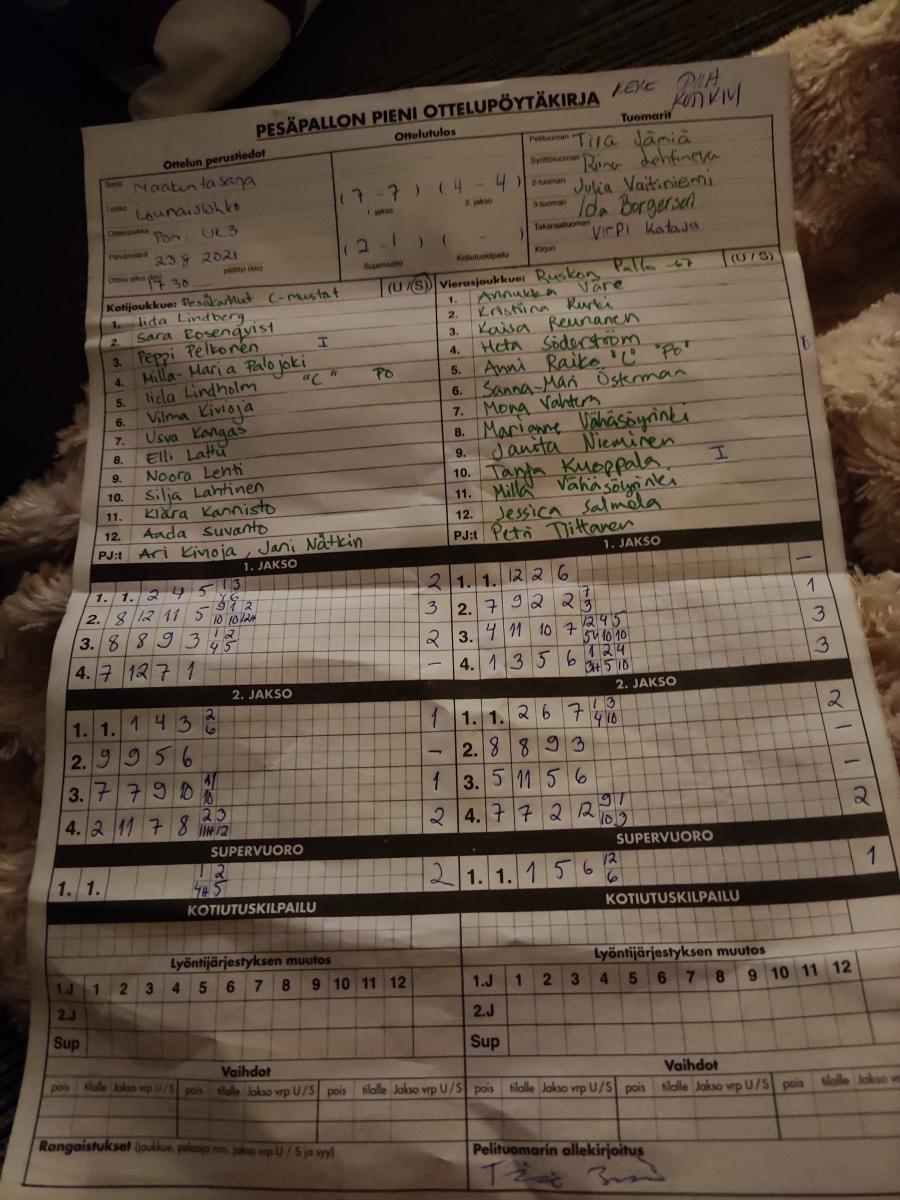 KEKE PIIA
PESÄPALLON PIENI OTTELUPÖYTÄKIRJA
Ottelun perustiedot
Sarja Maakuntasarja
Lohko Lounaislohko
Ottelupaikka Pori, UK3
Päivämäärä 23.8 2021
Ottelu alkoi (klo) 17.30 päättyi (klo)
Ottelutulos
(7 - 7) (4 - 4)
1. jakso 2. jakso
(2 - 1) ( - )
Supervuoro Kotiutuskilpailu
Tuomarit
Pelituomari Tiia Jämiä
Syöttötuomari Riina Lehtineva
2-tuomari Julia Vaitiniemi
3-tuomari Ida Borgersen
Takarajatuomari Virpi Kataja
Kirjuri
Kotijoukkue: Pesäkarhut C-mustat (U / S)
1. Iida Lindberg
2. Sara Rosenqvist
3. Peppi Pelkonen I
4. Milla-Maria Palojoki
5. Iida Lindholm "C" PO
6. Vilma Kivioja
7. Usva Kangas
8. Elli Lattu
9. Noora Lehti
10. Silja Lahtinen
11. Klara Kannisto
12. Aada Suvanto
PJ:t Ari Kivioja, Jani Nätkin
Vierasjoukkue: Ruskon Pallo -67 (U / S)
1. Annukka Väre
2. Kristiina Kurki
3. Kaisa Reunanen
4. Heta Söderström
5. Anni Raiko "C" "PO"
6. Sanna-Mari Österman
7. Mona Vahtera
8. Marianne Vähäsöyrinki
9. Janita Nieminen
10. Tanja Kuoppala I
11. Milla Vähäsöyrinki
12. Jessica Salmela
PJ:t Petri Tiittanen
1. JAKSO
1. 1. 2 4 5 1 3 2
2. 8 12 11 5 9 1 2 3
10 10 12H
3. 8 8 9 3 1 2 2
4 5
4. 7 12 7 1 –
1. JAKSO
1. 1. 12 2 6 –
2. 7 9 2 2 7 1
3
3. 4 11 10 7 12 4 5 3
5H 10 10
4. 1 3 5 6 1 2 4 3
3H 5 10
2. JAKSO
1. 1. 1 4 3 2 1
6
2. 9 9 5 6 –
3. 7 7 9 10 11 1
10
4. 2 11 7 8 2 3 2
11H 12
2. JAKSO
1. 1. 2 6 7 1 3 2
4 10
2. 8 8 9 3 –
3. 5 11 5 6 –
4. 7 7 2 12 9 1 2
10 3
SUPERVUORO
1. 1. 1 2 2
4H 5
SUPERVUORO
1. 1. 1 5 6 12 1
6
KOTIUTUSKILPAILU
KOTIUTUSKILPAILU
Lyöntijärjestyksen muutos
1.J 1 2 3 4 5 6 7 8 9 10 11 12
2.J
Sup
Lyöntijärjestyksen muutos
1.J 1 2 3 4 5 6 7 8 9 10 11 12
2.J
Sup
Vaihdot
pois tilalle Jakso vrp U / S pois tilalle Jakso vrp U / S pois tilalle Jakso vrp U / S
Vaihdot
pois tilalle Jakso vrp U / S pois tilalle Jakso vrp U / S pois tilalle Jakso
Rangaistukset (joukkue, pelaaja nro, jakso vrp U / S ja syy)
Pelituomarin allekirjoitus